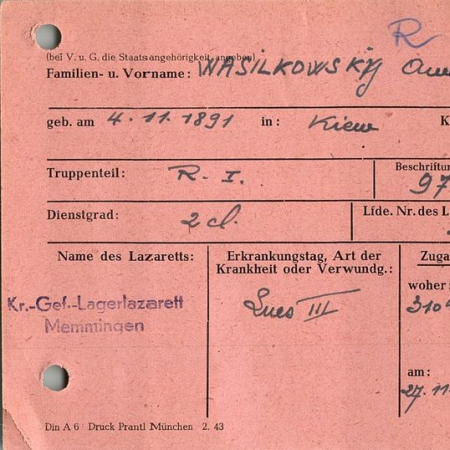 R
(bei V. u. G. die Staatsangehörigkeit angeben)
Familien- u. Vorname: WASILKOWSKYJ
geb. am 4.11.1891 in: Kiew K
Truppenteil: R. I. Beschriftun
97
Dienstgrad: 2 cl. Lfde. Nr. des L
Name des Lazaretts: Erkrankungstag, Art der Zuga
Krankheit oder Verwundg.:
woher:
Kr.-Gef.-Lagerlazarett Lues III 310
Memmingen
am:
27.11
Din A 6 Druck Prantl München 2. 43